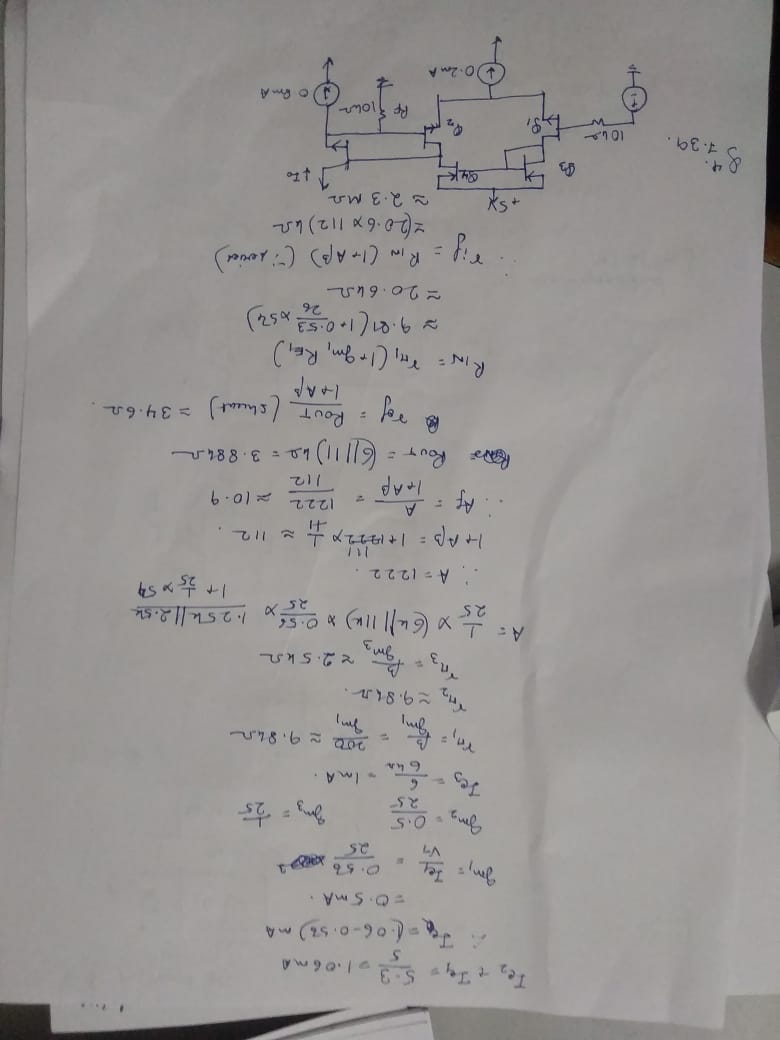 Ic2 + Ic1 = 5.3/5 = 1.06mA
∴ Ic2 = (1.06-0.56) mA
= 0.5mA.
gm1 = Ic1/VT = 0.56/25
gm2 = 0.5/25 gm3 = 1/25
Ic3 = 6/6kΩ = 1mA.
rπ1 = β/gm1 = 200/gm1 ≈ 9.8kΩ
rπ2 ≈ 9.8kΩ.
rπ3 = β/gm3 ≈ 2.5kΩ
A = 1/25 × (6k||11k) × 0.56/25 × 1.25k||2.5k / 1+ 1/25 × 54
∴ A = 1222.
1+Aβ = 1+ 111 × 1/11 ≈ 112.
∴ Af = A/1+Aβ = 1222/112 ≈ 10.9
ROUT = (6||11)kΩ = 3.88kΩ
rof = ROUT/1+Aβ (shunt) ≈ 34.6Ω.
RIN = rπ1 (1+gm1 RE1)
≈ 9.81 (1+ 0.53/26 × 54)
≈ 20.6kΩ
∴ rif = RIN (1+Aβ) (∵ series)
≈ (20.6 × 112) kΩ
≈ 2.3 MΩ
Q4.
7.39.
+5V
Q3 Q4 ↓Io
10kΩ Q1 Q2
RF 10kΩ 0.8mA
0.2mA